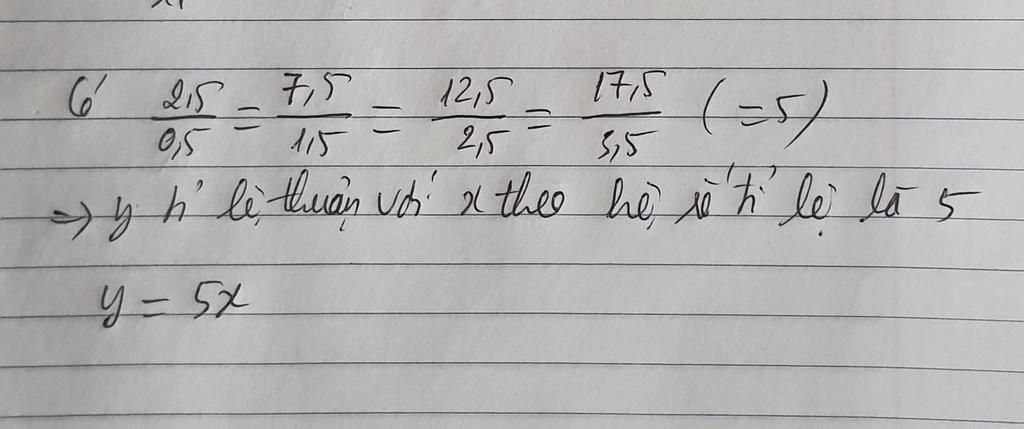 Có 2,5/0,5 = 7,5/1,5 = 12,5/2,5 = 17,5/3,5 (=5)
=> y tỉ lệ thuận với x theo hệ số tỉ lệ là 5
y = 5x